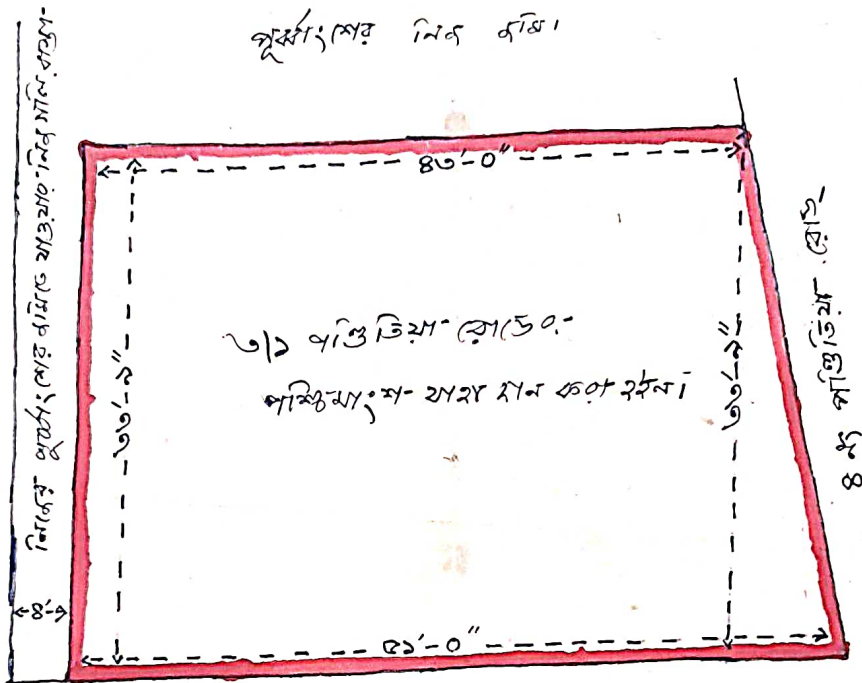 পূর্ব্বাংশের নিজ জমি।
নিজের পূর্ব্বাংশের জমিতে যাওয়ার নিজ
৪৩'-০"
৩৩'-৯"
৩/১ পণ্ডিতিয়া রোডের
পশ্চিমাংশ যাহা দান করা হইল।
৩৩'-৯"
৪ নং পণ্ডিতিয়া রোড
৫১'-০"